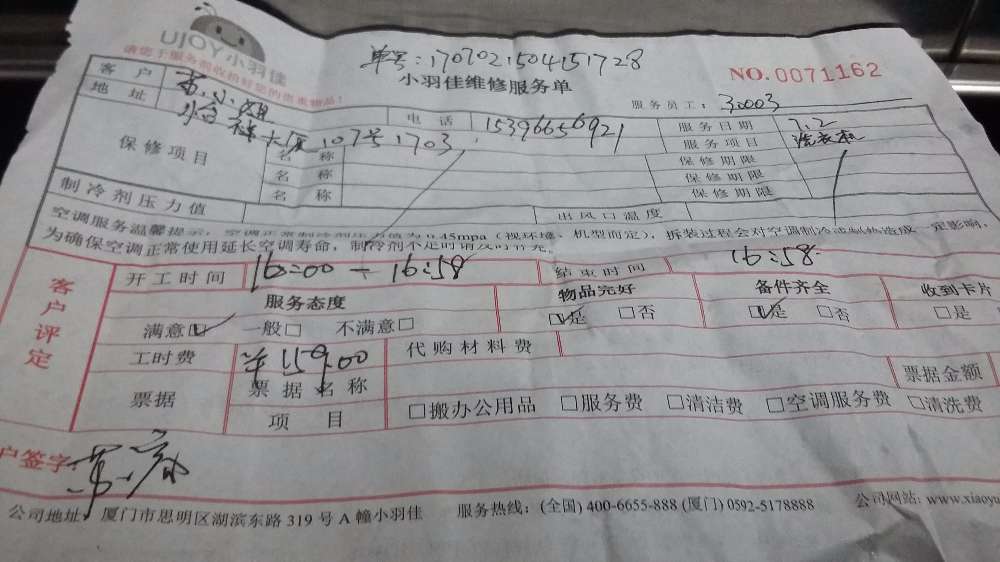 UJOY小羽佳
请您于服务前收拾好您的贵重物品！
单号：1707021504151728
小羽佳维修服务单
NO.0071162
服务员工：30003
客户 小姐
电话 15396656921
服务日期 7.2
地址 怡祥大厦107号1703
服务项目 洗衣机
保修项目
名称
保修期限
名称
保修期限
名称
保修期限
制冷剂压力值
出风口温度
空调服务温馨提示：空调正常制冷剂压力值为0.45mpa（视环境、机型而定），拆装过程会对空调制冷或制热造成一定影响，
为确保空调正常使用延长空调寿命，制冷剂不足时请及时补充。
客户评定
开工时间 16:00 — 16:58
结束时间 16:58
服务态度
物品完好
备件齐全
收到卡片
满意☑ 一般□ 不满意□
☑是 □否
☑是 □否
□是
工时费 ¥159.00
代购材料费
票据
票据名称
票据金额
项目
□搬办公用品 □服务费 □清洁费 □空调服务费 □清洗费
户签字
公司地址：厦门市思明区湖滨东路319号A幢小羽佳 服务热线：(全国) 400-6655-888 (厦门) 0592-5178888 公司网站：www.xiaoyu